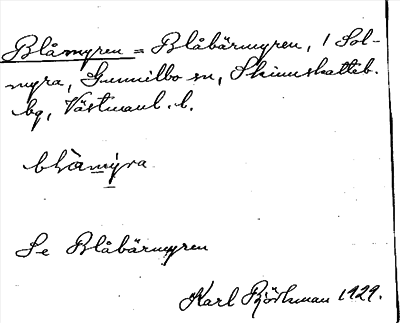 Blåmyren = Blåbärmyren, i Sol-
myra, Gunnilbo sn, Skinnskatteb.
bg, Västmanl. l.
blåmýra
Se Blåbärmyren
Karl Björkman 1929.